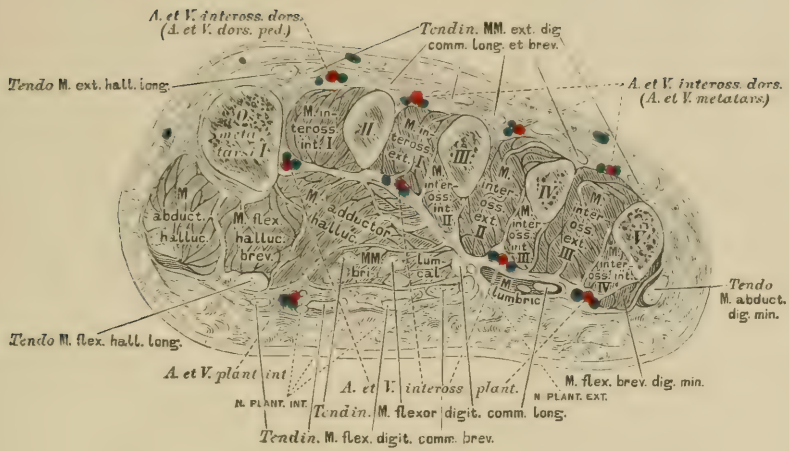 A. et V. inteross. dors.
(A. et V. dors. ped.)
Tendin. MM. ext. dig
comm. long. et brev.
Tendo M. ext. hall. long.
A. et V. inteross. dors.
(A. et V. metatars.)
O.
meta
tarsi I
M. in-
teross.
int. I
II
M. in-
teross
ext. I
III
M.
inter-
oss.
int.
II
M.
inter-
oss.
ext
II
IV
M.
inter-
oss.
int
III
M.
inter
oss.
ext.
III
V.
M.
inter-
oss. int.
IV
M
abduct.
halluc.
M. flex.
halluc.
brev.
M. adductor
halluc.
MM.
bri-
lum-
cal.
M.
lumbric.
Tendo
M. abduct.
dig. min.
Tendo M. flex. hall. long.
A. et V. plant int
N. PLANT. INT.
A. et V. inteross plant.
N PLANT. EXT.
M. flex. brev. dig. min.
Tendin. M. flexor digit. comm. long.
Tendin. M. flex. digit. comm. brev.